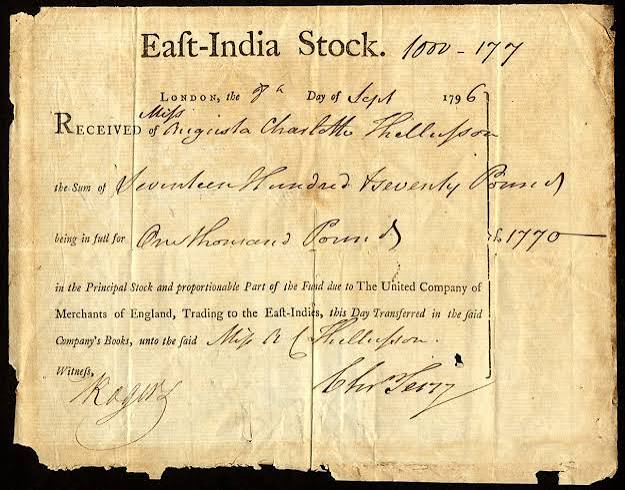 Eaſt-India Stock. 1000 - 177
LONDON, the 8th Day of Sept 1796
Miſs
RECEIVED of Augusta Charlotte Thelluſson
the Sum of Seventeen Hundred & seventy Pounds
being in full for One thousand Pounds £1770
in the Principal Stock and proportionable Part of the Fund due to The United Company of
Merchants of England, Trading to the Eaſt-Indies, this Day Transferred in the ſaid
Company's Books, unto the ſaid Miſs A C Thelluſson.
Witneſs,
Rogers Chrr Terry